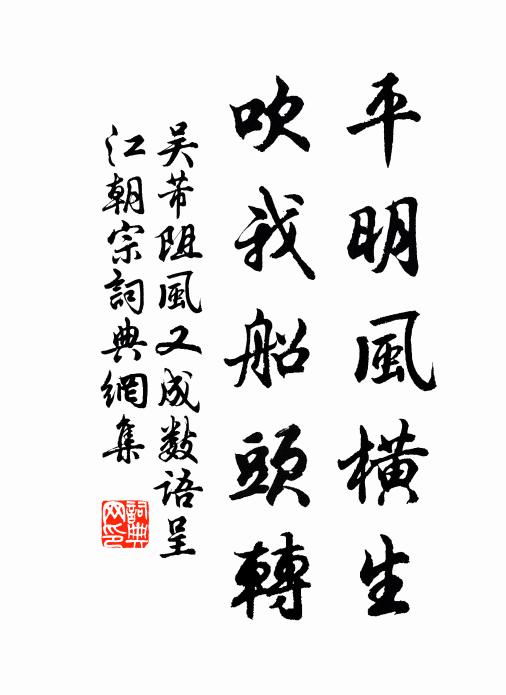 平明風橫生
吹我船頭轉
吳芾阻風又成數語呈
江朝宗詞典網集
詞典網印